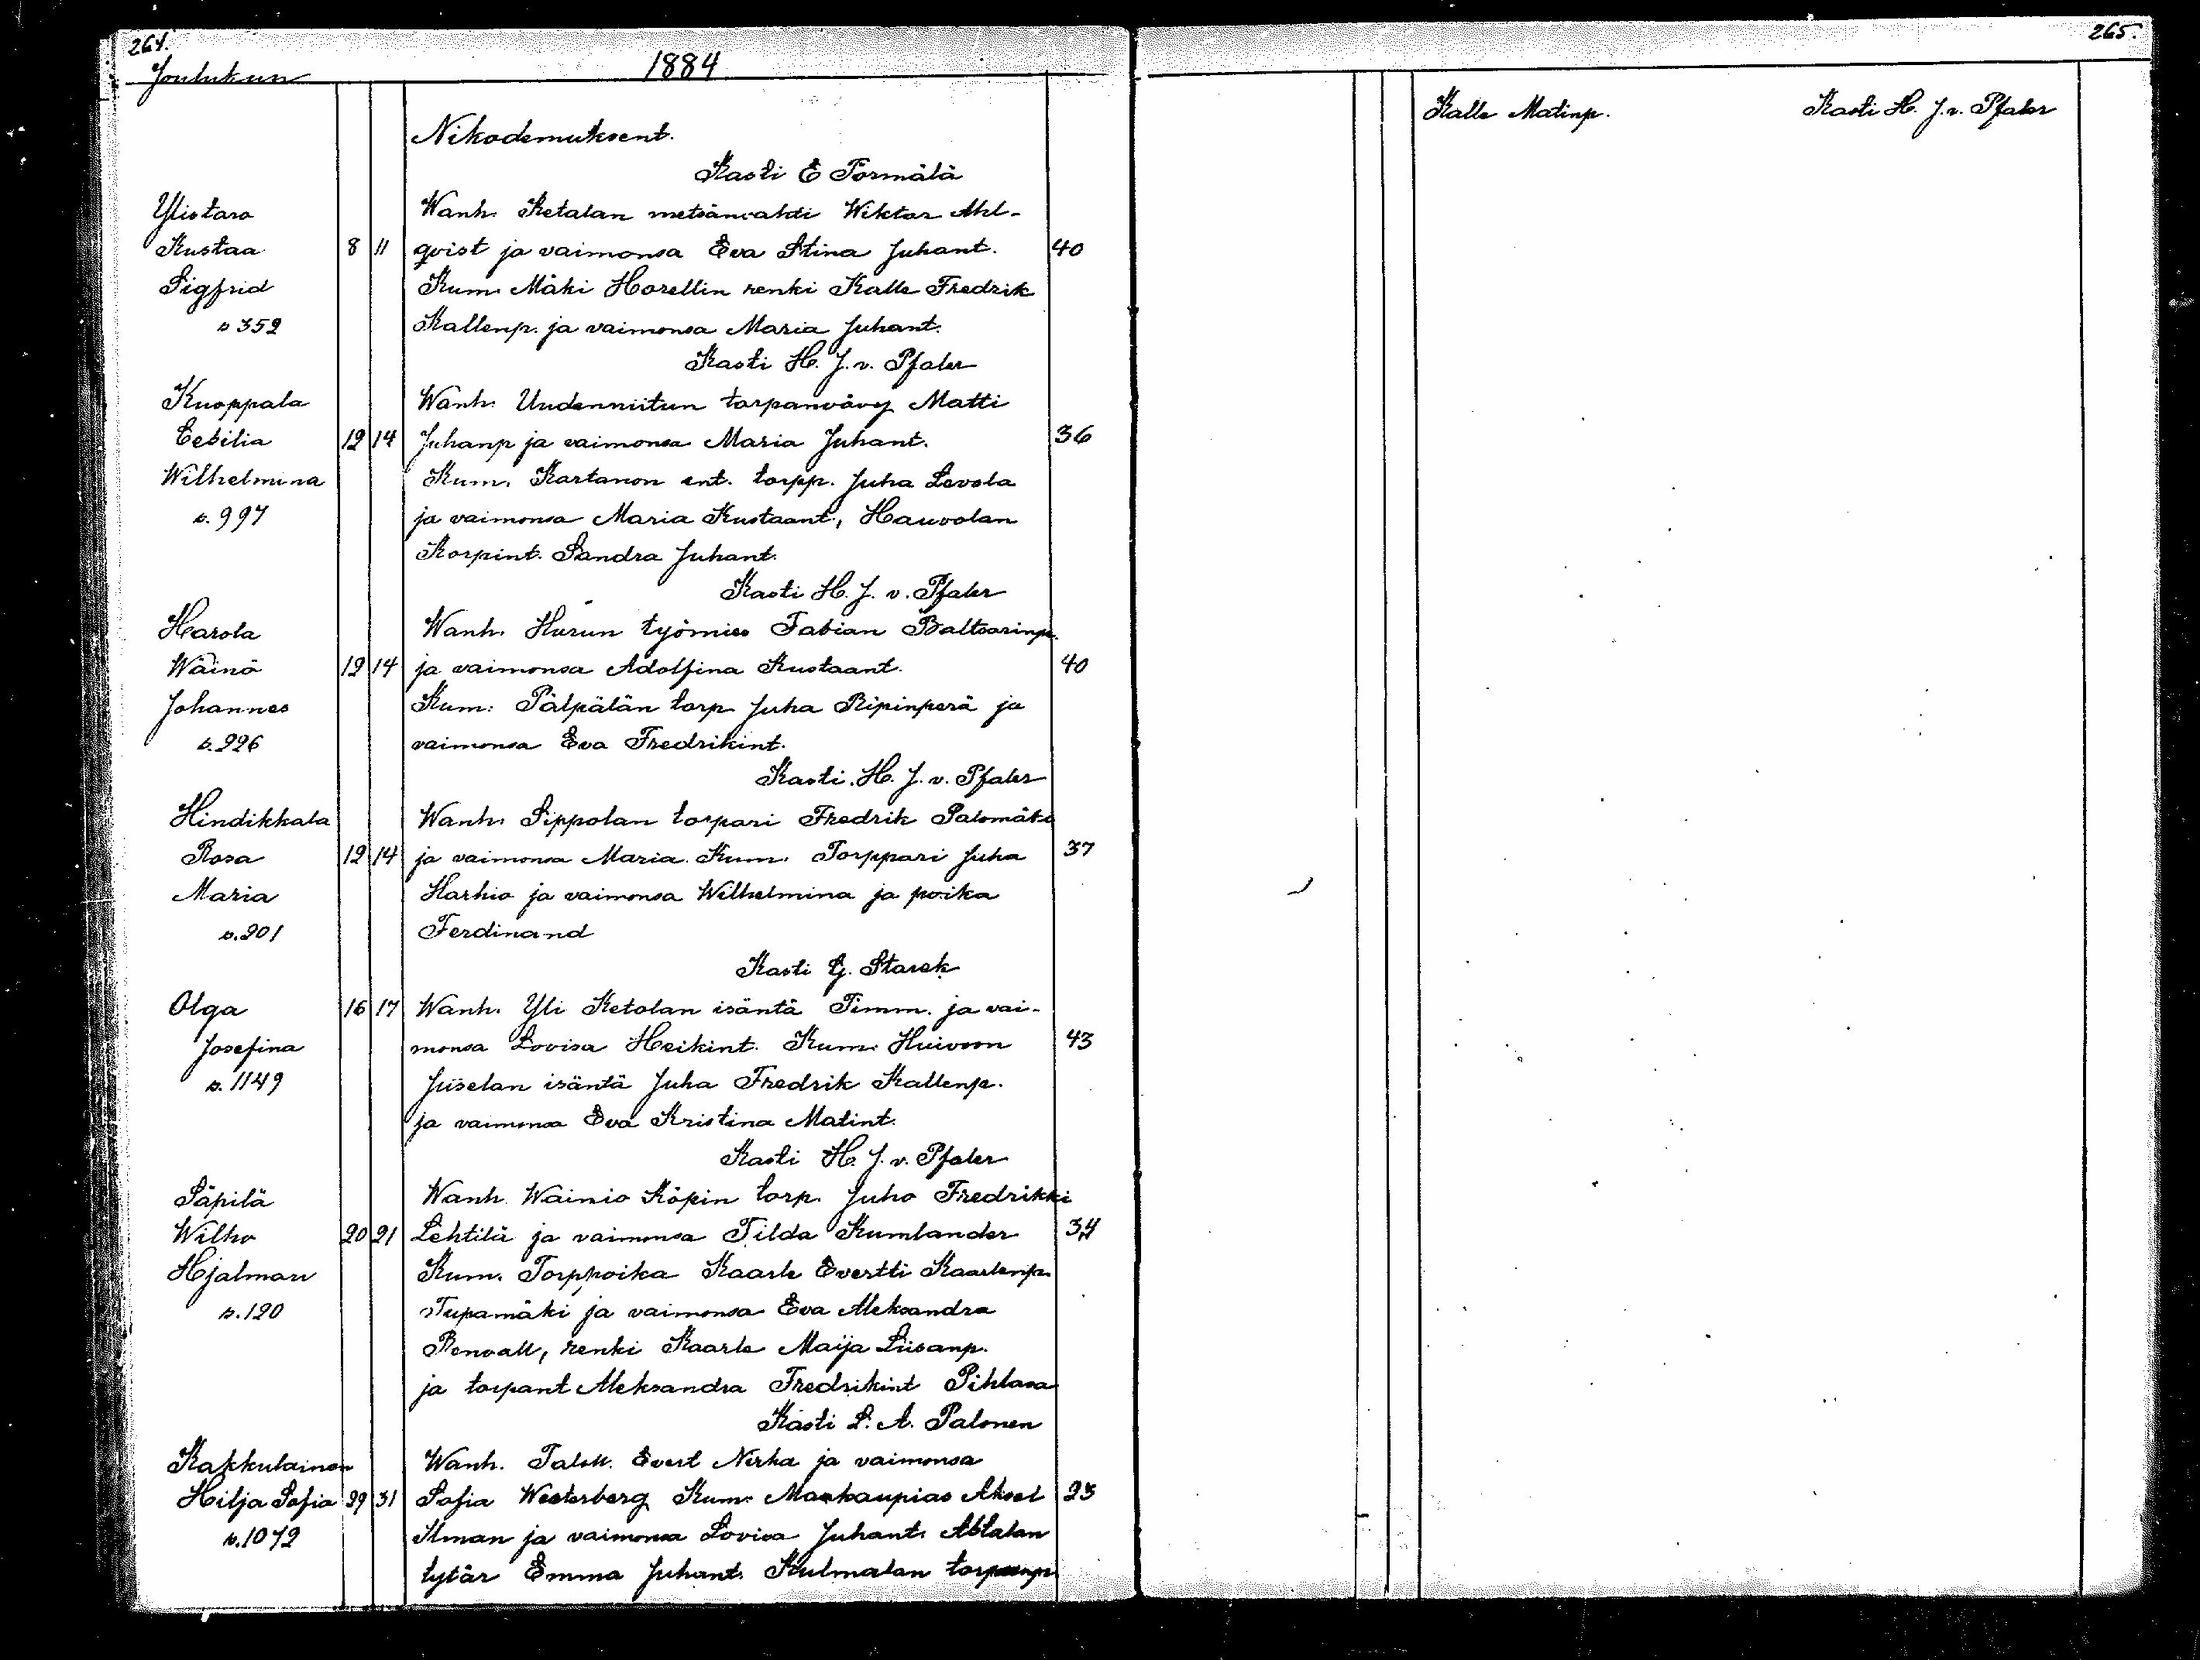 264.
Joulukun 1884
Nikodemuksent.
Kasti E Törmälä
Ylistaro Wanh. Ketalan metsänvahti Wiktor Ahl-
Kustaa 8 11 qvist ja vaimonsa Eva Stina Juhant. 40
Sigfrid Kum. Mäki Horellin renki Kalle Fredrik
s 352 Kallenp. ja vaimonsa Maria Juhant.
Kasti H. J. v. Pfaler
Kuoppala Wanh. Uudenniitun torpanvävy Matti
Cesilia 12 14 Juhanp ja vaimonsa Maria Juhant. 36
Wilhelmina Kum. Kartanon ent. torpp. Juha Levola
s. 997 ja vaimonsa Maria Kustaant., Hauvolan
Korpint. Sandra Juhant.
Kasti H. J. v. Pfaler
Harola Wanh. Hurun työmies Fabian Baltsarinp.
Wäinö 12 14 ja vaimonsa Adolfina Kustaant. 40
Johannes Kum: Pälpälän torp. Juha Ripinperä ja
s. 226 vaimonsa Eva Fredrikint.
Kasti. H. J. v. Pfaler
Hindikkala Wanh. Sippolan torpari Fredrik Palomäki
Rosa 12 14 ja vaimonsa Maria. Kum. Torppari Juha 37
Maria Harhio ja vaimonsa Wilhelmina ja poika
s. 201 Ferdinand
Kasti G. Starck
Olga 16 17 Wanh. Yli Ketolan isäntä Timm. ja vai-
Josefina monsa Lovisa Heikint. Kum. Huivoon 43
s. 1149 Juselan isäntä Juha Fredrik Kallenp.
ja vaimonsa Eva Kristina Matint.
Kasti H. J. v. Pfaler
Säpilä Wanh. Wainio Köpin torp. Juho Fredrikki
Wilho 20 21 Lehtilä ja vaimonsa Tilda Kumlander 34
Hjalmari Kum. Torppoika Kaarle Evertti Kaarlenp.
s. 120 Tupamäki ja vaimonsa Eva Aleksandra
Renvall, renki Kaarle Maija Liisanp.
ja torpant Aleksandra Fredrikint Pihlava
Kasti L. A. Palonen
Kakkulainen Wanh. Talok. Evert Nirha ja vaimonsa
Hilja Sofia 29 31 Sofia Westerberg Kum. Maakaupias Aksel 23
s. 1072 Ilman ja vaimonsa Lovisa Juhant. Ablalan
tytär Emma Juhant. Kulmalan torpanp.
265.
Kalle Matinp. Kasti H. J. v. Pfaler